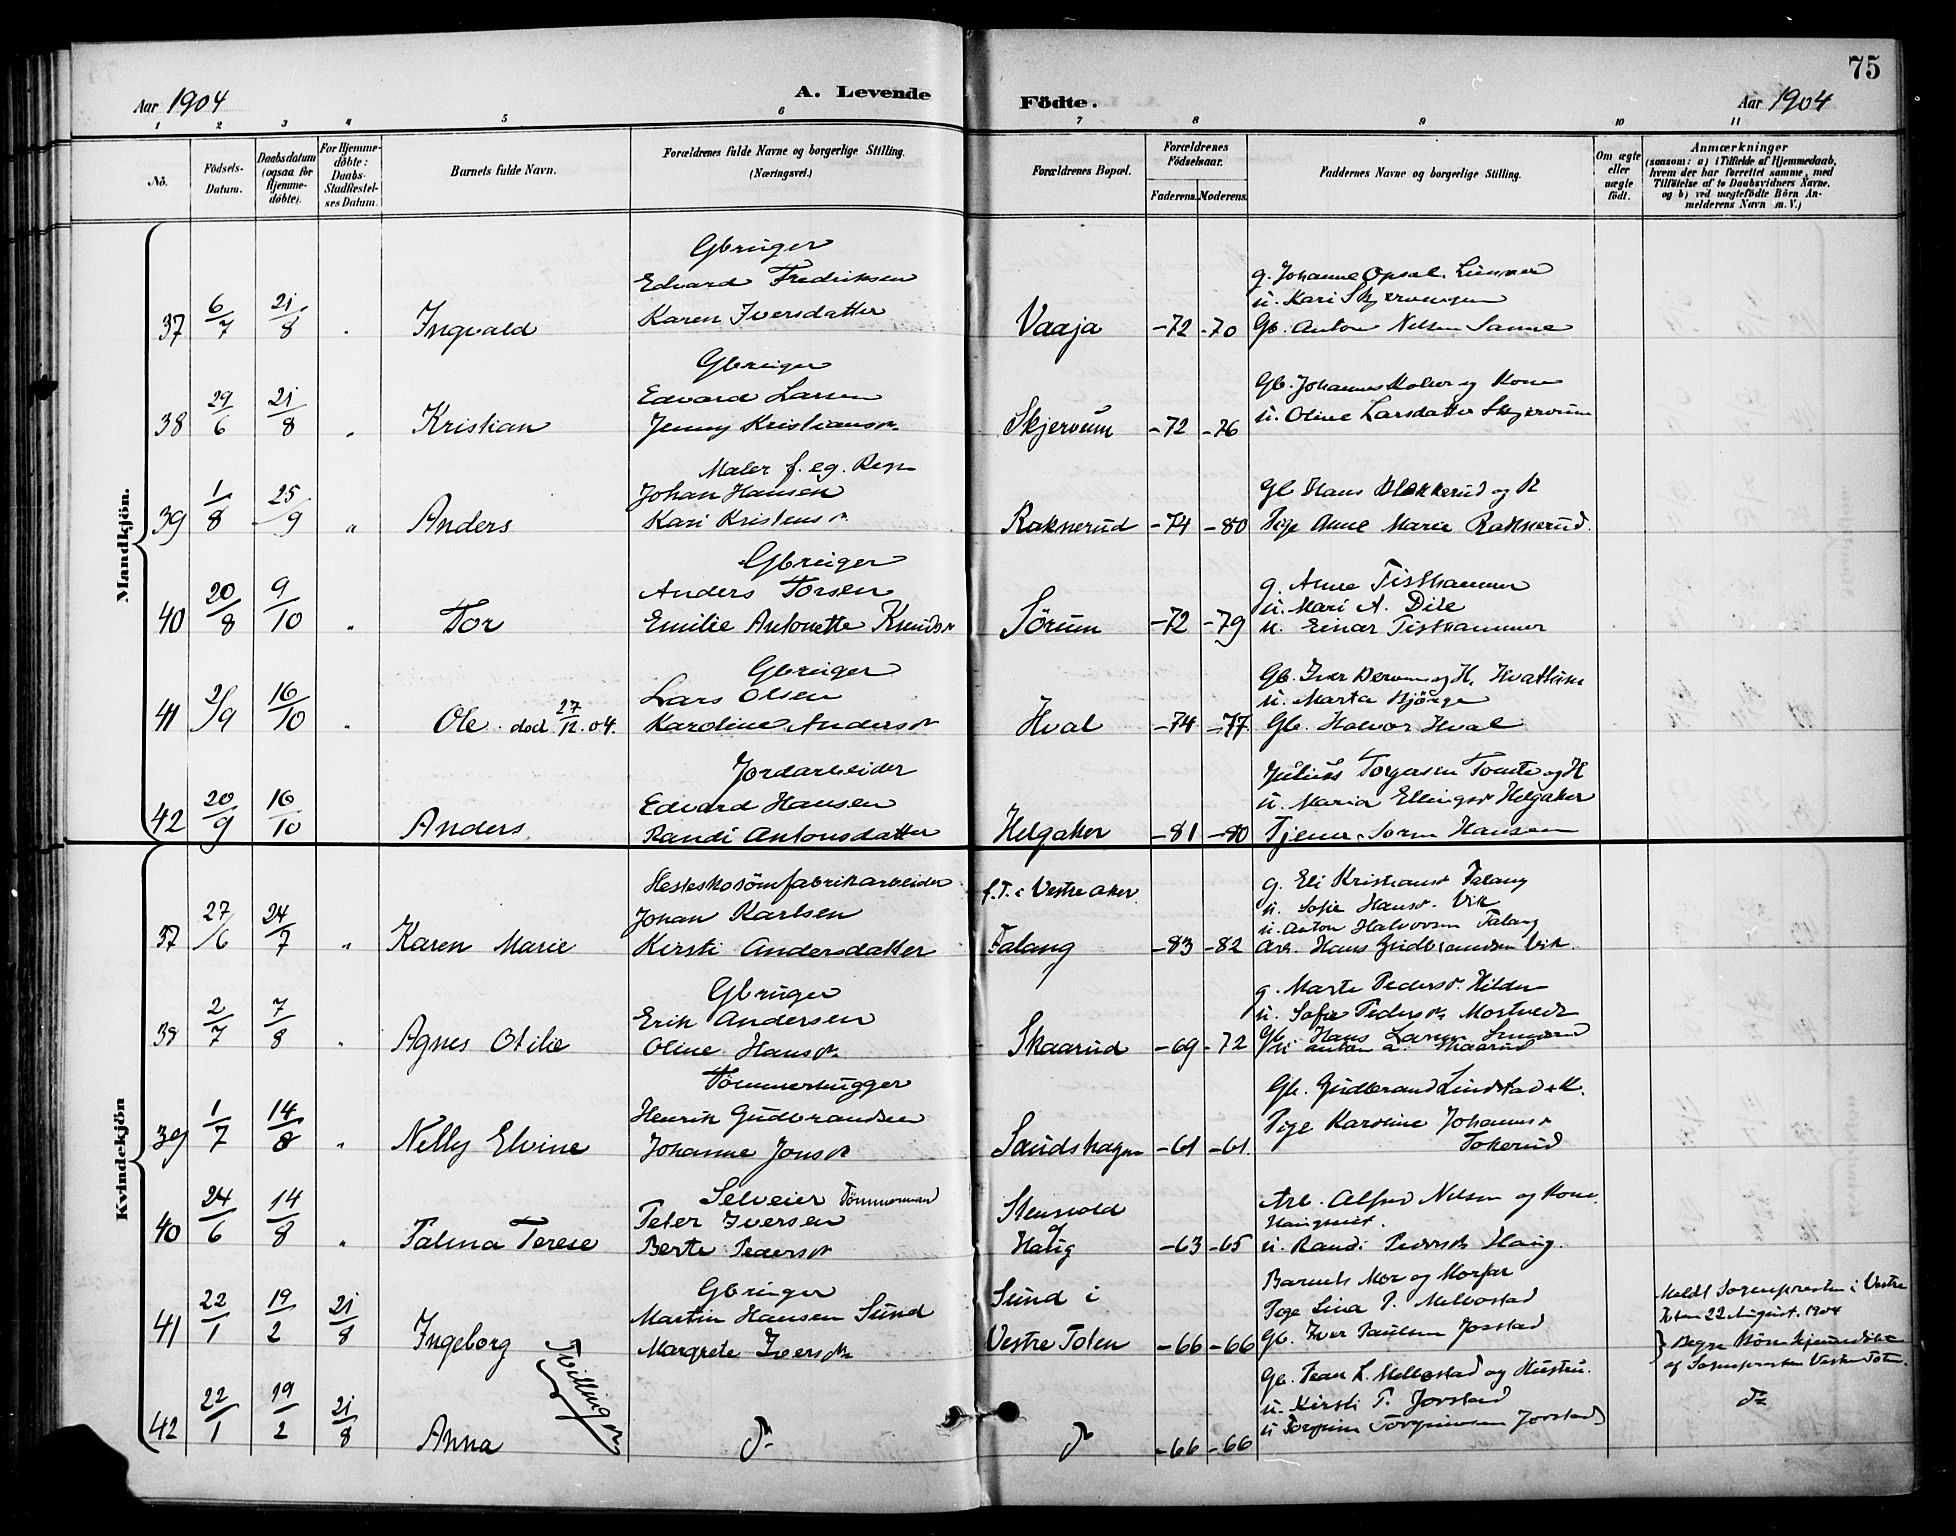 75
Aar 1904
A. Levende
Födte.
Aar 1904
1 2 3 4 5 6 7 8 9 10 11
No.
Födsels-Datum.
Daabsdatum (ogsaa for Hjemme-døbte).
For Hjemme-døbte: Daabs-Stadfæstel-ses Datum.
Barnets fulde Navn.
Forældrenes fulde Navne og borgerlige Stilling.
(Næringsvei.)
Forældrenes Bopæl.
Forældrenes Födselsaar.
Faderens. Moderens.
Faddernes Navne og borgerlige Stilling.
Om ægte eller uægte födt.
Anmærkninger
(saasom: a) i Tilfælde af Hjemmedaab, hvem der har forrettet samme, med Tilföielse af to Daabsvidners Navne. og b) ved uægtefödte Börn An-melderens Navn m. V.)
Mandkjön.
Gbruger
Edvard Fredriksen
g. Johanne Opsal.
37 6/7 21/8 Ingvald Karen Iversdatter Vaaja -72 -70 Gb. Anton Nelsen Sanne
Gbruger
Edvard Larsen
38 29/6 21/8 " Kristian Jenny Kristiansd. Skjervum -72 -76 u. Oline Larsdatter Skjervum
Maler f. eg. Regn
Johan Hansen
Gb Hans Blekkerud og K
39 1/8 25/9 " Anders Kari Kristensd. Raknerud -74 -80 Pige Anne Marie Raknerud.
Gbruger
Anders Torsen
g. Anne Tisthammer
u. Mari A. Dile
40 20/8 9/10 " Tor Emilie Antonette Knudsd. Sörum -72 -79 u. Einar Tisthammer
Gbruger
Lars Olsen
u. Marta Bjönge
41 2/9 16/10 " Ole. död 27/12.04. Karoline Andersd. Hval -74 -77 Gb. Halvor Hval
Jordarbeider
Edvard Hansen
Julius Torgersen Tomte og H
u. Maria Ellingsd. Helgaker
42 20/9 16/10 Anders Randi Antonsdatter Helgaker -81 -80 Tjener Sorn Hansen
Kvindekjön
Hesteskosömfabrikarbeider
Johan Karlsen
f. T. i Vestre Aker
g. Eli Kristiansd. Falang
u. Sofie Hansd. Vik
u. Anton Halvorsen Falang
37 27/6 24/7 " Karen Marie Kirsti Andersdatter Falang -83 -82 Arb. Hans Gudbrandsen Vik
Gbruger
Erik Andersen
g. Marte Pedersd. Hilden
u. Sofie Pedersd.
38 2/7 7/8 " Agnes Otilie Oline Hansd. Skaarud -69 -72 Gb. Hans Larsen
u. Anton A. Skaarud
Tömmerhugger
Henrik Gudbrandsen
Gb. Gudbrand Lindstad + K.
39 1/7 14/8 " Nelly Elvine Johanne Jonsd. Sandshagen -61 -61 Pige Karoline Johannsd.
Tokerud
Selveier Tömmermand
Peter Iversen
Stensvold
Arb. Alfred Nelsen og Kone
40 24/6 14/8 " Palma Terese Berte Pedersd. Haug -63 -65 u. Randi Pedersd. Haug.
Gbruger
Martin Hansen Sund
Sund i
Barnets Mor og Morfar
Pige Lina P. Melbostad
Meldt Sognepresten i Vestre
Toten 22 August. 1904
41 22/1 19/2 21/8 Ingeborg Margrete Iversd. Vestre Toten -66 -66 Gb. Iver Paulsen Jorstad
} Begge Börn hjemmedöbt
af Sognepresten Vestre Toten.
Tvillinger
Gb. Iver L. Melbostad og Hustru.
u. Kirsti P. Jorstad
do
42 22/1 19/2 21/8 Anna do do -66 -66 u. Torgrim Torgrimsen Jorstad